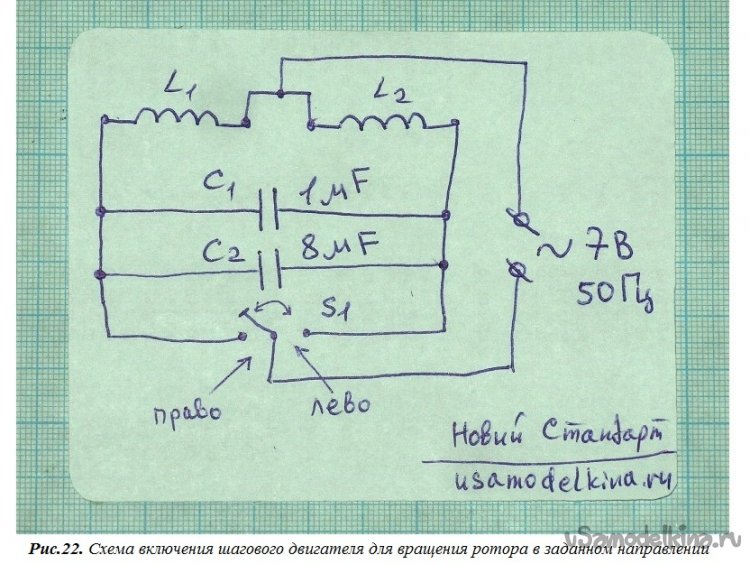 L1
L2
C1
1 мF
C2
8 мF
~ 7В
50Гц
S1
право
лево
Новий Стандарт
usamodelkina.ru
uSamodelkina.ru
Рис.22. Схема включения шагового двигателя для вращения ротора в заданном направлении